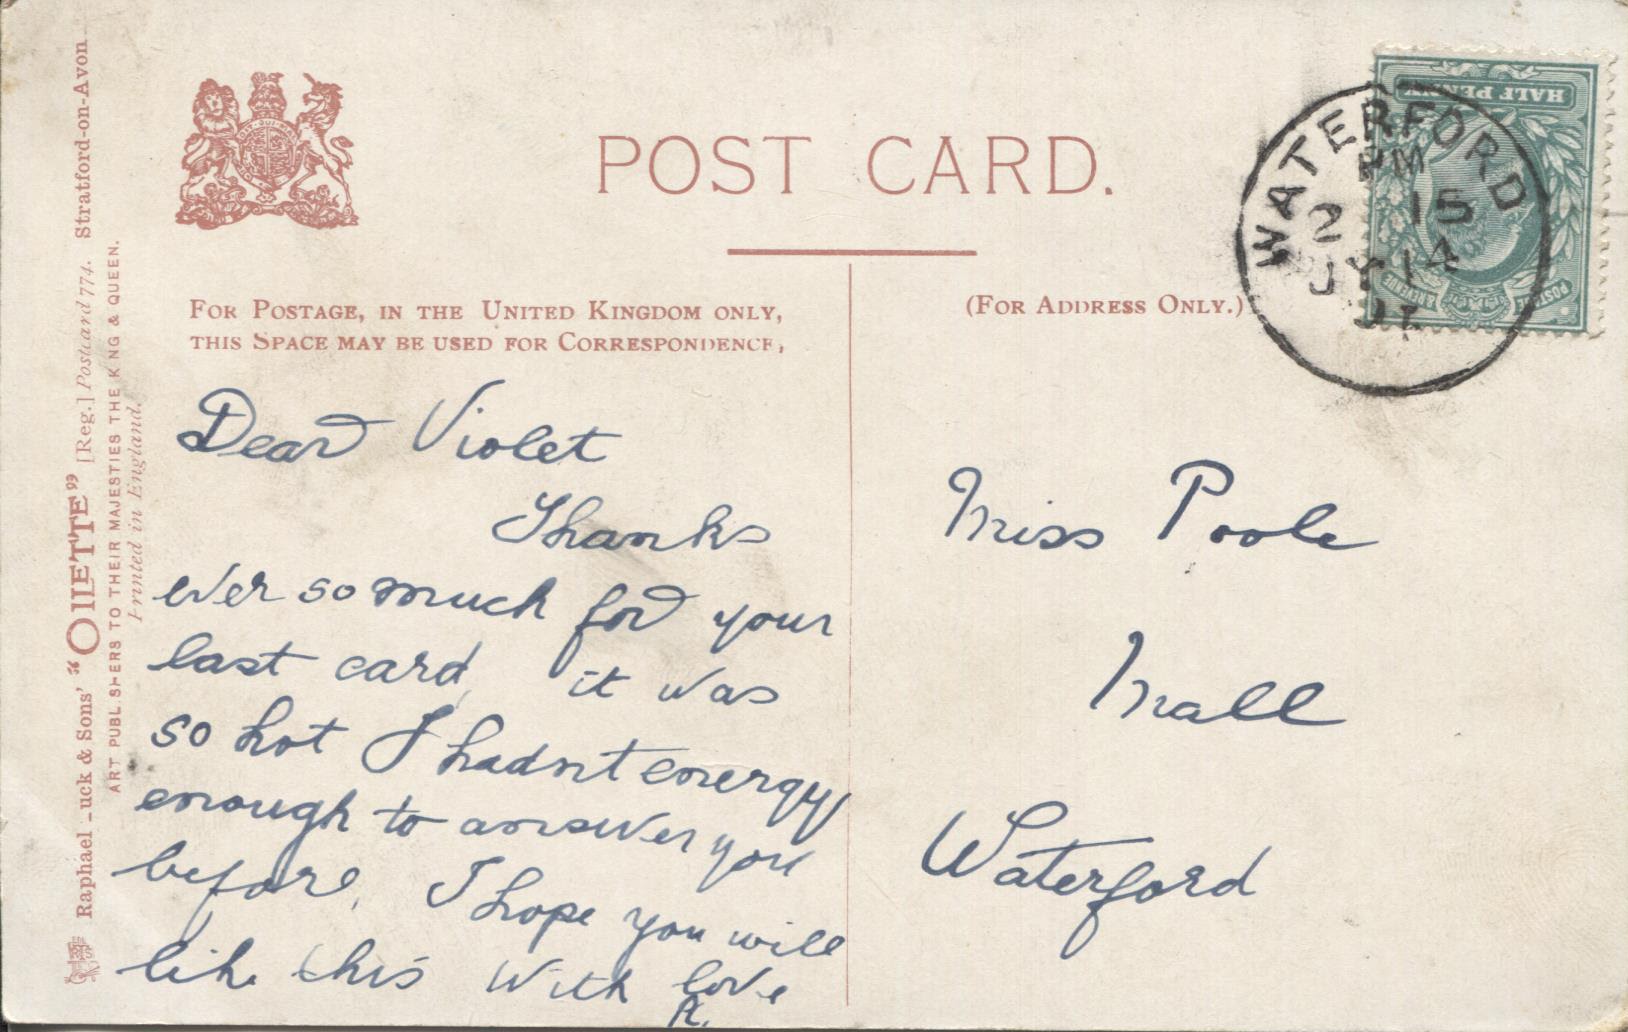 POST CARD.
FOR POSTAGE, IN THE UNITED KINGDOM ONLY,
THIS SPACE MAY BE USED FOR CORRESPONDENCE,
(FOR ADDRESS ONLY.)
Dear Violet
Thanks
ever so much for your
last card, it was
so hot I hadnt energy
enough to answer you
before, I hope you will
like this With love
A.
Miss Poole
Mall
Waterford
WATERFORD
PM
2 15
JY 14
07
HALF PENNY
POSTAGE & REVENUE
Raphael Tuck & Sons' "OILETTE" [Reg.] Postcard 774. Stratford-on-Avon
ART PUBLISHERS TO THEIR MAJESTIES THE KING & QUEEN.
Printed in England.